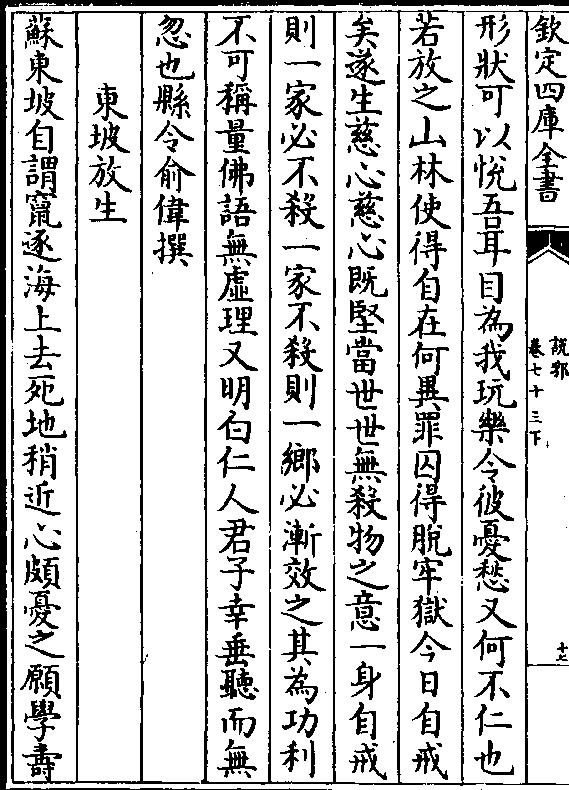 欽定四庫全書
説郛
卷七十三下
十七
形狀可以悅吾耳目為我玩樂令彼憂愁又何不仁也
若放之山林使得自在何異罪囚得脫牢獄今日自戒
矣遂生慈心慈心既堅當世世無殺物之意一身自戒
則一家必不殺一家不殺則一鄉必漸效之其為功利
不可稱量佛語無虛理又明白仁人君子幸垂聽而無
忽也縣令俞偉撰
東坡放生
蘇東坡自謂竄逐海上去死地稍近心頗憂之願學壽